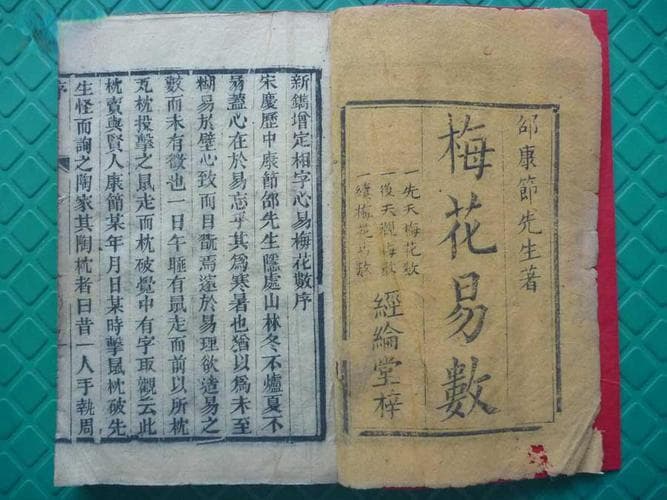 邵康節先生著
梅花易數
一先天梅花數
一後天觀梅數
一續梅花巧數
經綸堂梓
新鐫增定相字心易梅花數序
宋慶歷中康節邵先生隱處山林冬不爐夏不
易蓋心在於易忘乎其爲寒暑也猶以爲未至
糊易於壁心致而目翫焉邃於易理欲造易之
數而未有徵也一日午睡有鼠走而前以所枕
瓦枕投擊之鼠走而枕破覺中有字取觀云此
枕賣與賢人康節某年月日某時擊鼠枕破先
生怪而詢之陶家其陶枕者曰昔一人手執周
序